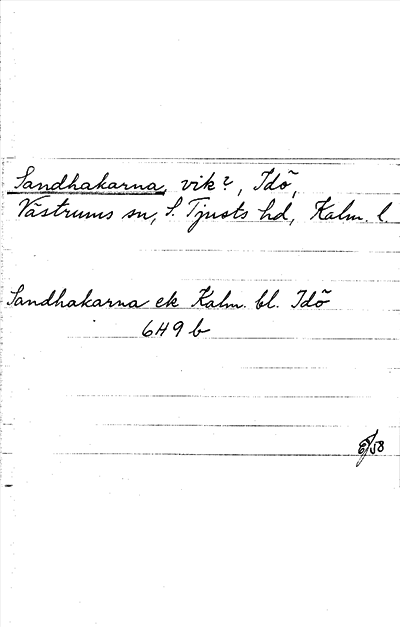 Sandhakarna, vik?, Idö,
Västrums sn, S. Tjusts hd, Kalm. l.
Sandhakarna ek Kalm. bl. Idö
6H9b
/58